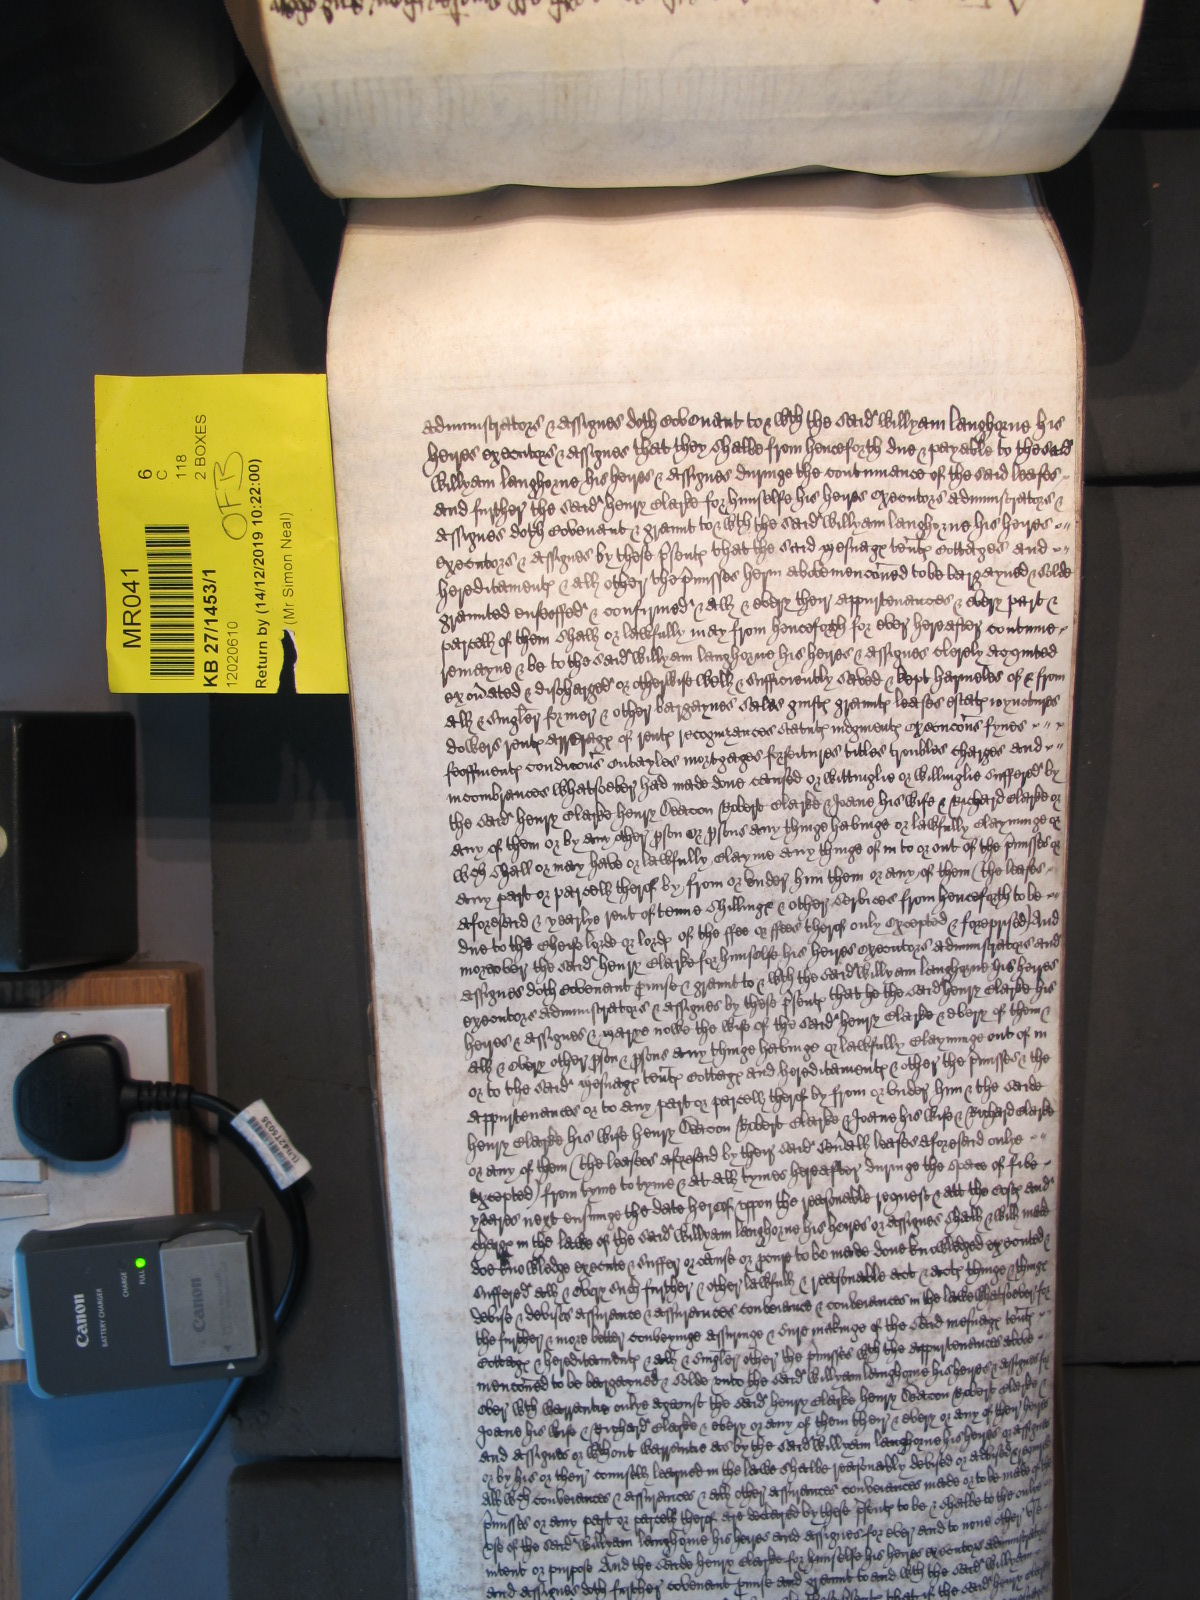 MR041
6
C
118
2 BOXES
KB 27/1453/1
12020610
Return by (14/12/2019 10:22:00)
(Mr Simon Neal)
OFB
Canon
BATTERY CHARGER
CHARGE
FULL
Canon
administrators & assignes doth Covenant to & wth the said Willyam langhorne his
heires executors & assignes that they shalbe from henceforth due & payable to the said
Willyam langhorne his heires & assignes duringe the contynuance of the said leases
And further the said Henry Clarke for himselfe his heires executors administrators &
assignes doth Covenant & graunt to & wth the said Willyam langhorne his heires
executors & assignes by these psents that the said mesuage tents Cottages and
hereditaments & all other the pmisses herin abovemenconed to be bargayned & solde
graunted enfeoffed & confirmed & all & every their appurtenances & every part &
parcell of them shall or lawfully may from henceforth for ever hereafter contynue
remayne & be to the said Willyam langhorne his heires & assignes clerely acquited
exonated & discharged or otherwise well & sufficiently saved & kept harmeles of & from
all & singler former & other bargaynes sales guifts graunts leases estats ioyntures
dowers rents arrerags of rents recognizances statuts iudgments execucons fynes
feoffments condicons entayles mortgages forfeitures titles troubles charges and
incombrances whatsoever had made done caused or wittinglie or willinglie suffered by
the said Henry Clarke Henry Deacon Robert Clarke & Joane his wife & Richard Clarke or
any of them or by any other pson or psons any thinge havinge or lawfully clayminge or
wch shall or may have or lawfully clayme any thinge of in to or out of the pmisses or
any part or parcell therof by from or under him them or any of them (the leases
aforesaid & yearlye rent of tenne shillings & other services from henceforth to be
due to the cheife lorde or lords of the fee or fees therof only excepted & foreprised) And
moreover the said Henry Clarke for himselfe his heires executors administrators and
assignes doth Covenant pmise & graunt to & wth the said Willyam langhorne his heires
executors administrators & assignes by these psents that he the said Henry Clarke his
heires & assignes & marye nowe the wife of the said Henry Clarke & every of them &
all & every other pson & psons any thinge havinge or lawfully clayminge out of in
or to the said mesuage tents Cottags and hereditaments & other the pmisses & the
appurtenances or to any part or parcell therof by from or under him & the saide
Henry Clarke his wife Henry Deacon Robert Clarke & Joane his wife & Richard Clarke
or any of them (the leases aforesaid by their said sevall leases aforesaid onlie
excepted) from tyme to tyme & at all tymes hereafter duringe the space of five
yeares next ensuinge the date hereof uppon the reasonable request & att the Costs and
chargs in the lawe of the said Willyam langhorne his heires or assignes shall & will make
doe knowledge execute & suffer or cause or pcure to be made done knowledged executed &
suffered all & every such further & other lawfull & reasonable act & acts thinge & things
devise & devises assurance & assurances conveiance & conveiances in the lawe whatsoever for
the further & more better conveyinge assuringe & sure makinge of the said mesuage tents
Cottags & hereditaments & all & singler other the pmisses wth the appurtenances above
menconed to be bargayned & solde unto the said Willyam langhorne his heires & assignes for
ever wth warrantie onlye against the said Henry Clarke Henry Deacon Robert Clarke &
Joane his wife & Richard Clarke & every or any of them their & every or any of their heires
and assignes or wthout warrantie as by the said Willyam langhorne his heires or assignes
or by his or their councell learned in the lawe shalbe reasonably devised or advised
all wch conveiances & assurances & all other assurances conveiances made or to be made of the
pmisses or any part or parcell therof are declared by these psents to be & shalbe to the only
use of the said Willyam langhorne his heires and assignes for ever and to none other use
intent or purpose And the saide Henry Clarke for himselfe his heires executors administrators
and assignes doth further covenant pmise and graunt to and wth the said Willyam
that if the said Henry Clarke